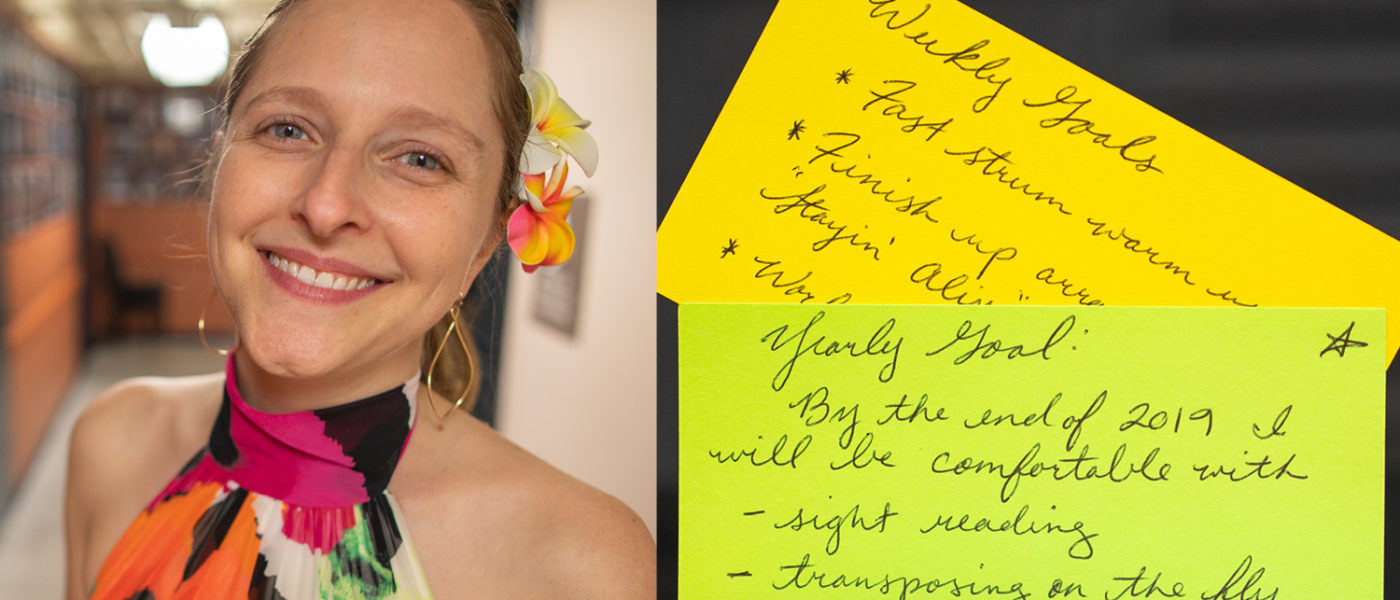 Weekly Goals
* Fast strum warm u
* Finish up arra
"Stayin' Alive"
*
Yearly Goal: ☆
By the end of 2019 I
will be comfortable with
- sight reading
- transposing on the fly